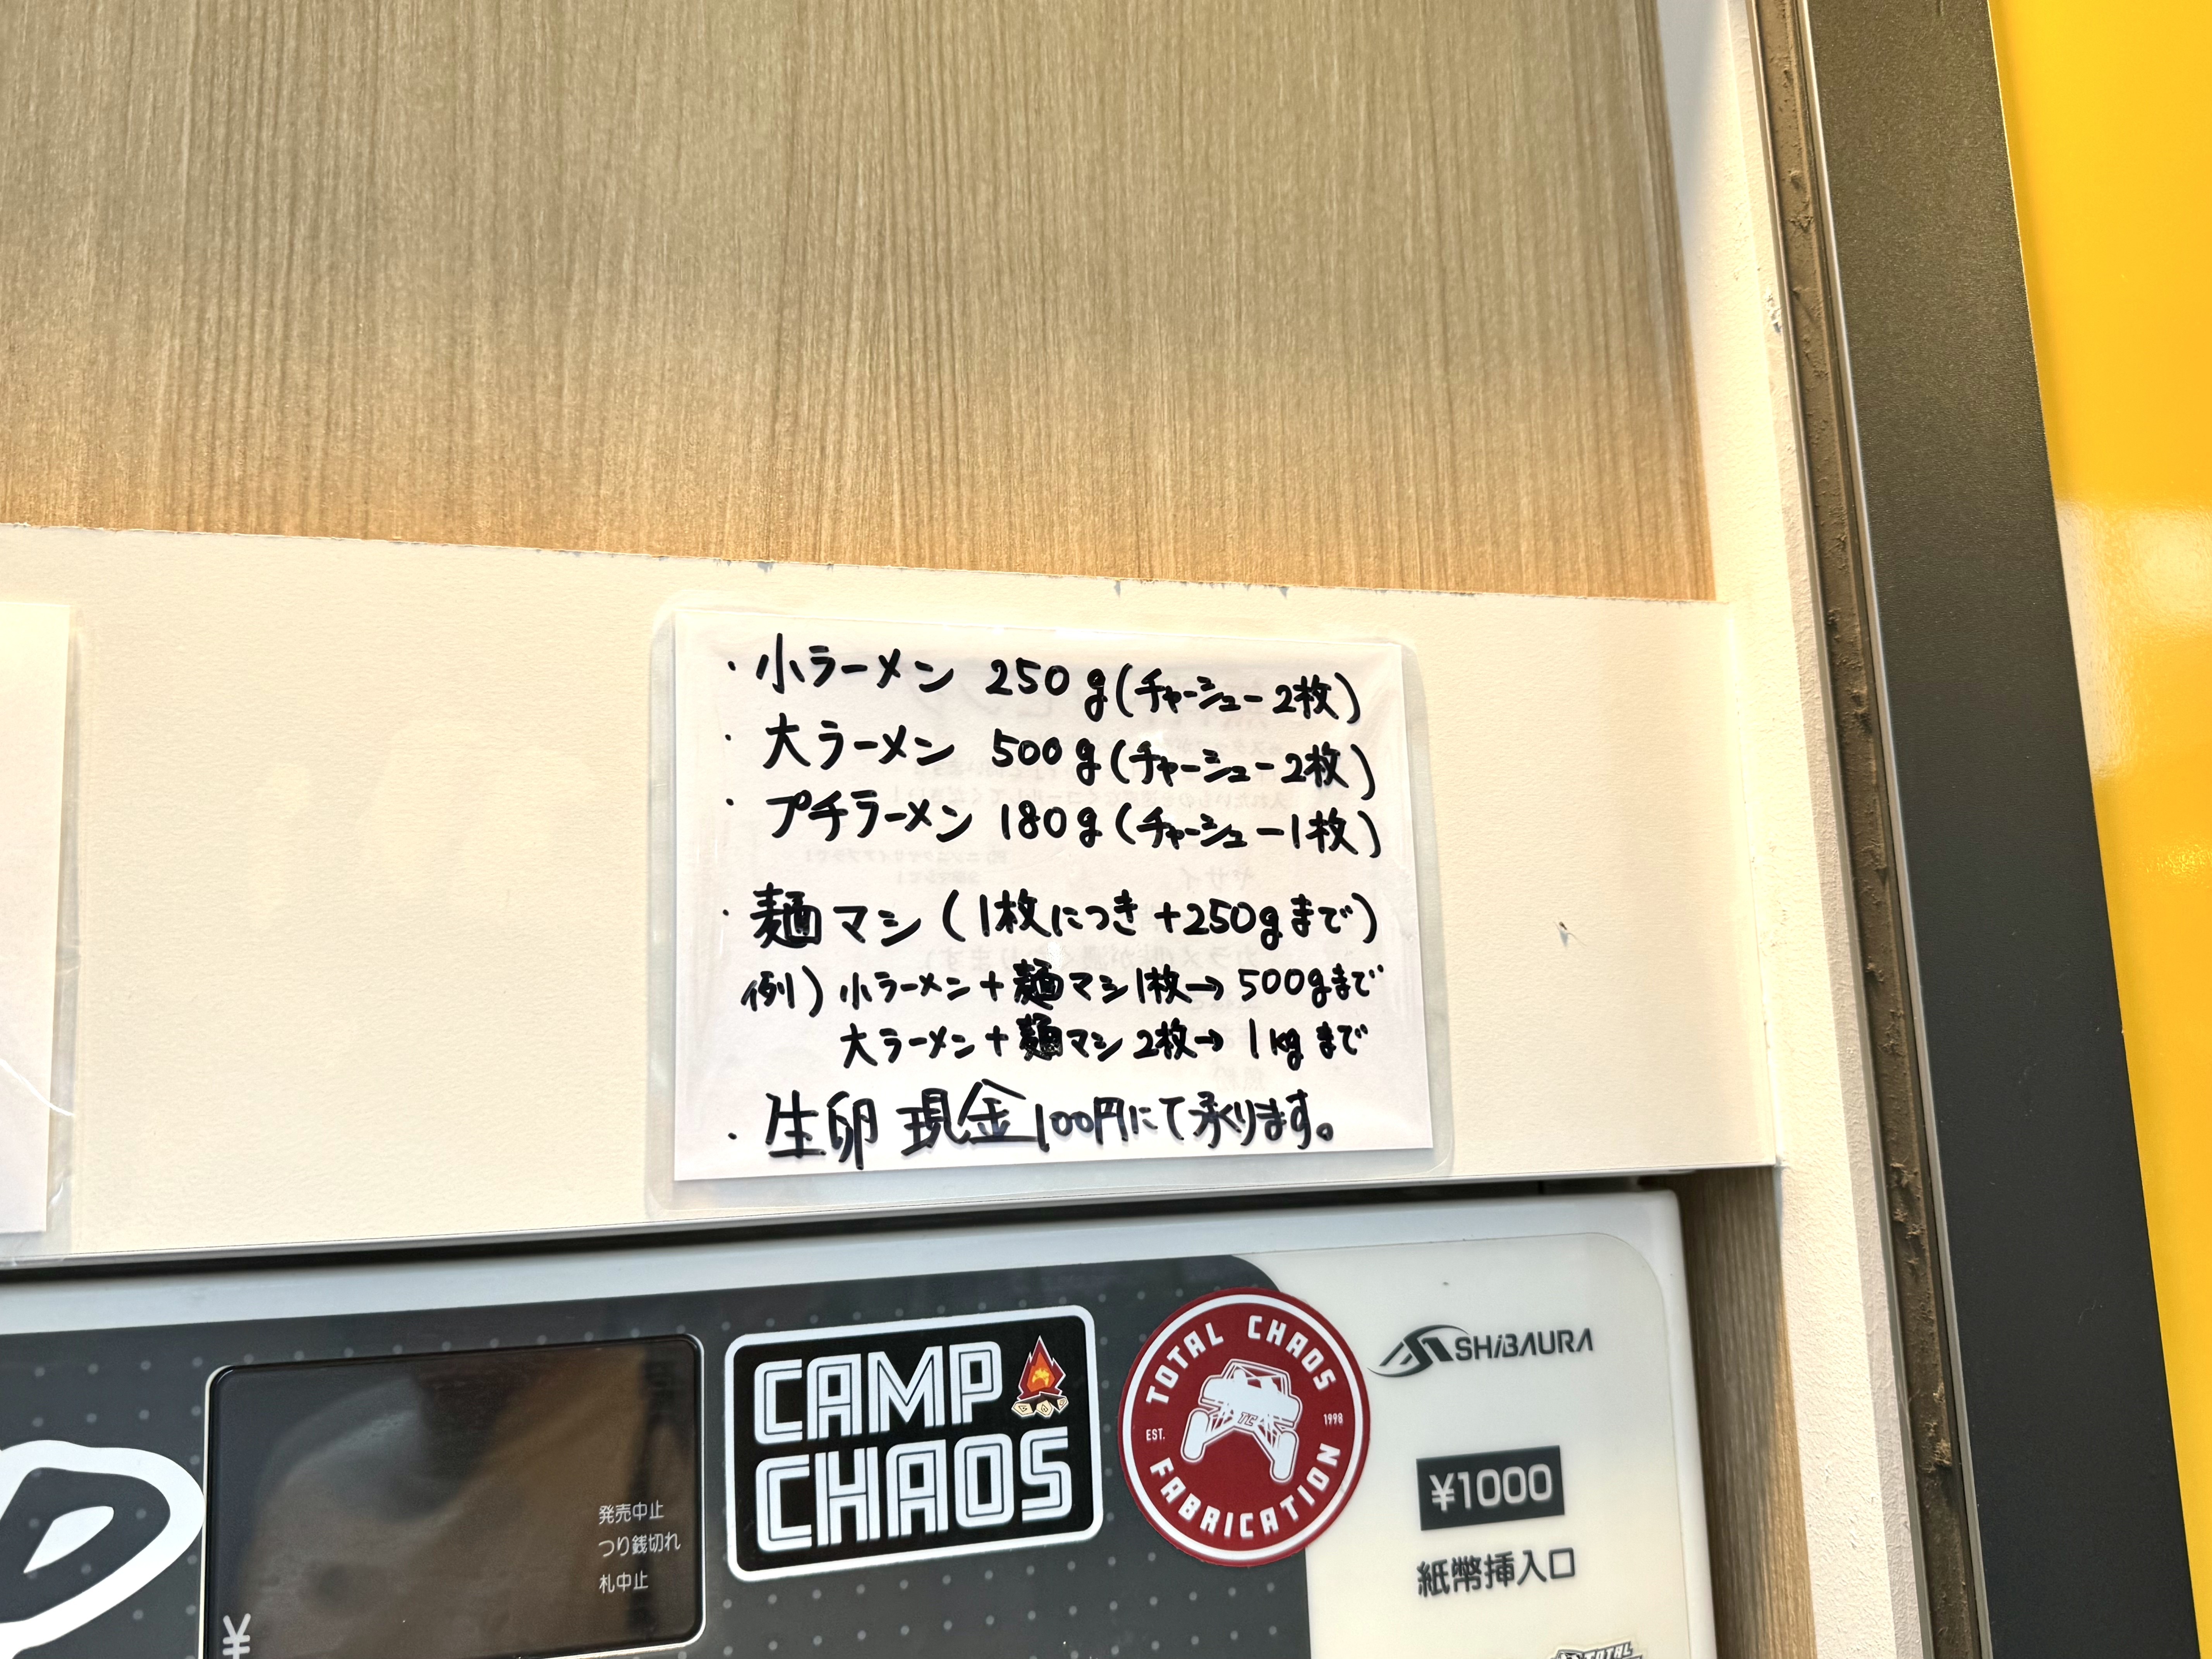 ・小ラーメン 250g(チャーシュー2枚)
・大ラーメン 500g(チャーシュー2枚)
・プチラーメン 180g(チャーシュー1枚)
・麺マシ(1枚につき+250gまで)
例)小ラーメン+麺マシ1枚→500gまで
大ラーメン+麺マシ2枚→1kgまで
・生卵 現金100円にて承ります。
CAMP
CHAOS
TOTAL CHAOS
EST. 1998
TC
FABRICATION
SHiBAURA
¥1000
紙幣挿入口
発売中止
つり銭切れ
札中止
¥
TOTAL